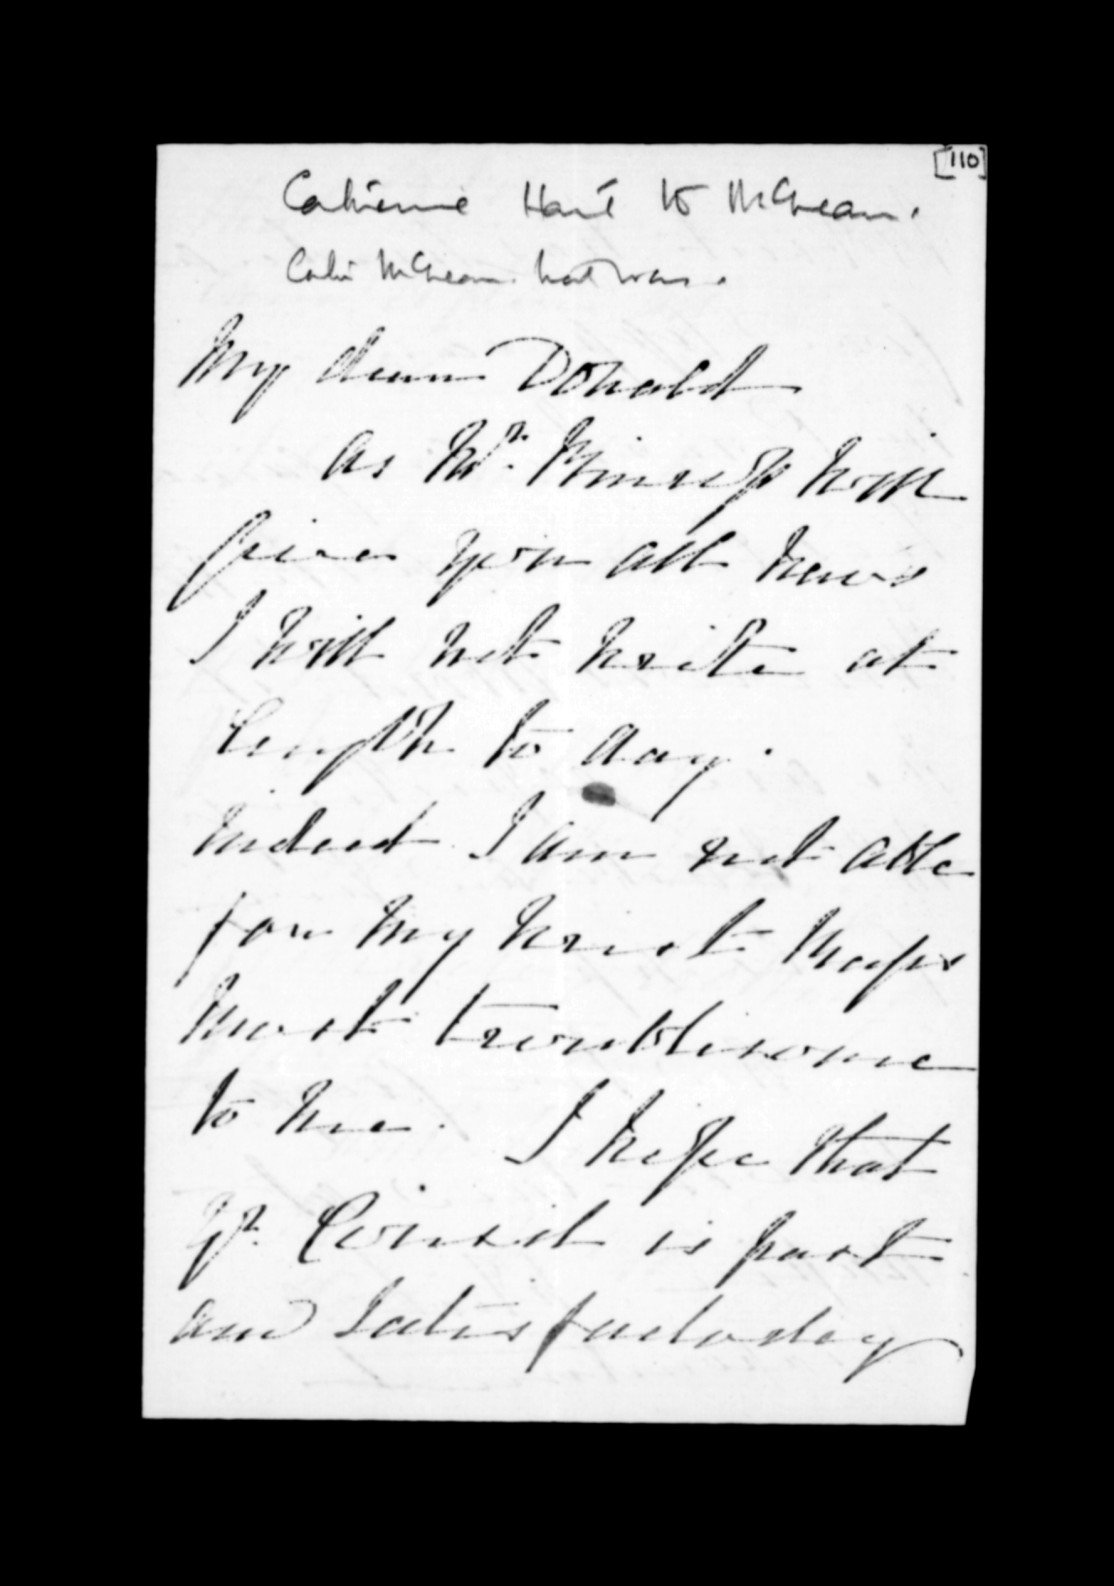 [110]
Catherine Hart to McLean.
Colin McLean
My dear Donald
As Mr.  will
give you all news
I will not write at
length to day.
indeed I am not able
for my wrist keeps
most troublesome
to me. I hope that
Yr. is past
and satisfactory